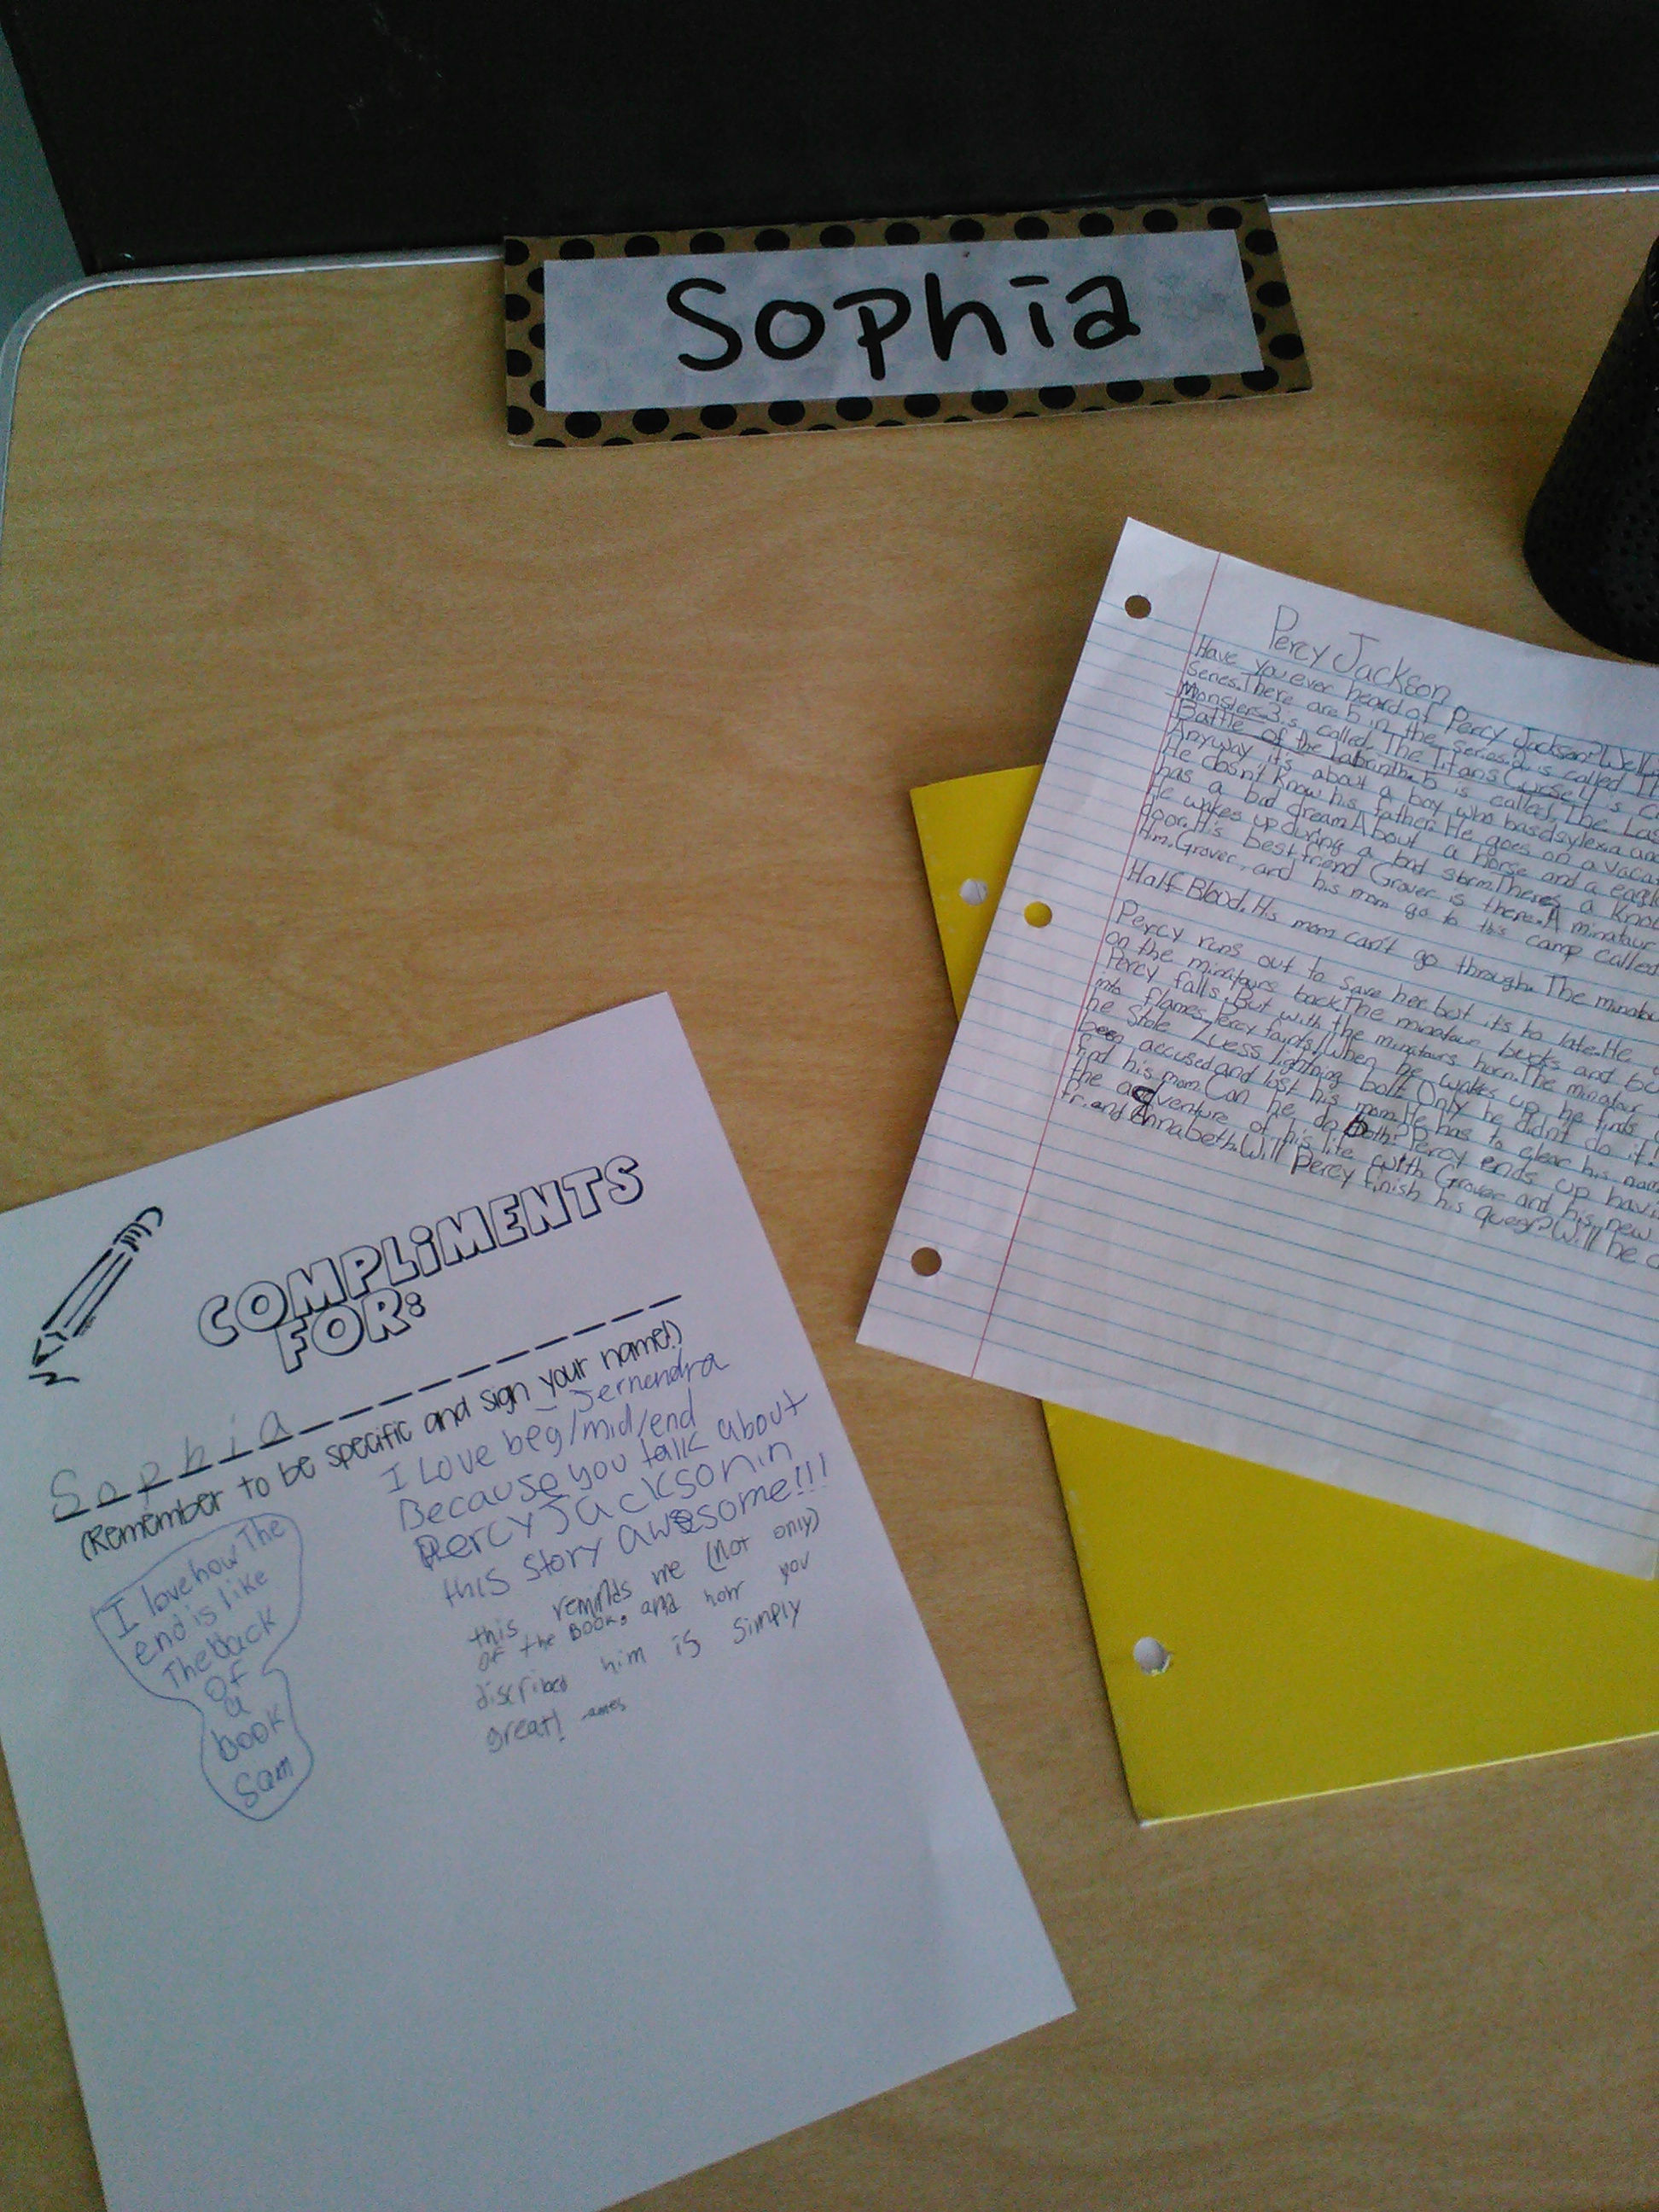 Sophia
Percy Jackson
Have you ever heard of Percy Jackson? Well
series. There are 5 in the series. 2. is called
Monsters 3. is called, The Titans Curse 4 is
Battle of the Labrinth. 5 is called, The Las
Anyway, it's about a boy who has dsylexia and
He dosn't know his father. He goes on a vaca
has a bad dream. About a horse and a eagle
He wakes up during a bad storm. There's a kno
door. His best friend Grover is there. A minataur
him. Grover, and his mom go to this camp called
Half-Blood. His mom can't go through. The minatau
Percy runs out to save her but it's to late. He
on the minatours back. The minatour bucks and
Percy falls. But with the minatours horn. The minatour
into flames. Percy faints! When he wakes up he finds
he stole Zuess lightning bolt. Only he didn't do it!
been accused and lost his mom. He has to clear his nam
find his mom. Can he do both? Percy ends up havi
the adventure of his life with Grover and his new
friend Annabeth. Will Percy finish his quest? Will he
COMPLiMENTS
FOR:
Sophia
(Remember to be specific and sign your name!)
I love how The
end is like
The Back
of
a
book
Sam
I Love beg/mid/end
Because you talk about
Percy Jackson in
this story awesome!!!
this reminds me (not only)
of the Book, and how you
discribed him is simply
great!